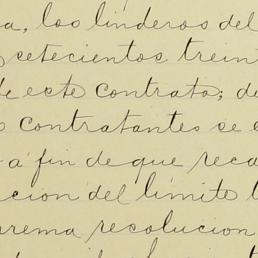 a, los linderos del
setecientos trein
de este contrato; de
contratantes se c
a fin de que reca
cion del límite l
rema resolucion